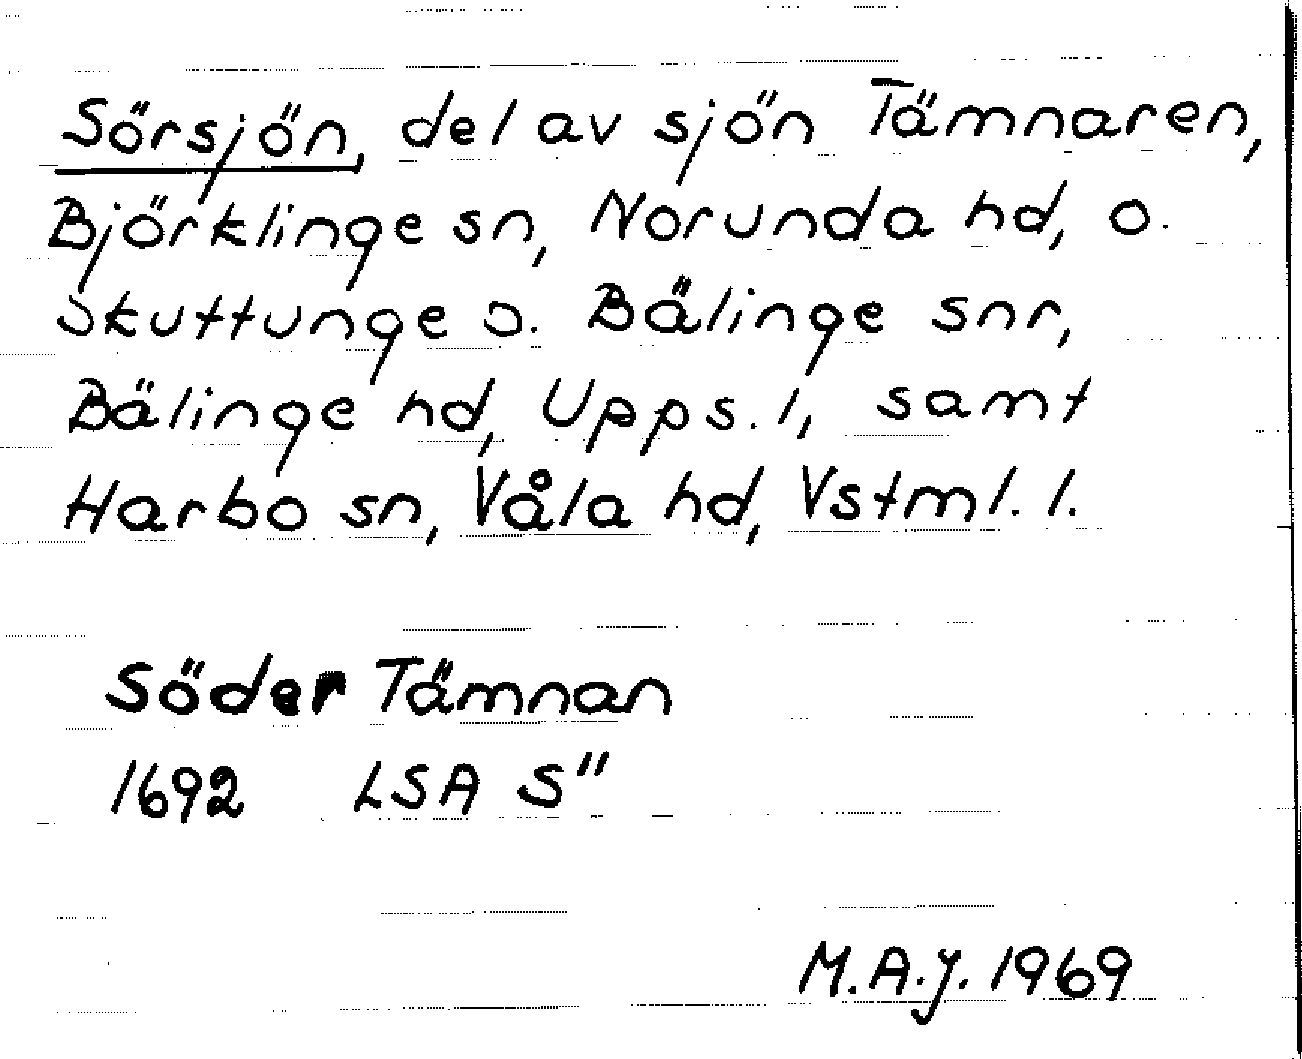 Sörsjön, del av sjön Tämnaren,
Björklinge sn, Norunda hd, o.
Skuttunge o. Bälinge snr,
Bälinge hd, Upps. l, samt
Harbo sn, Våla hd, Vstml. l.
Söder Tämnan
1692 LSA S"
M.A.J. 1969